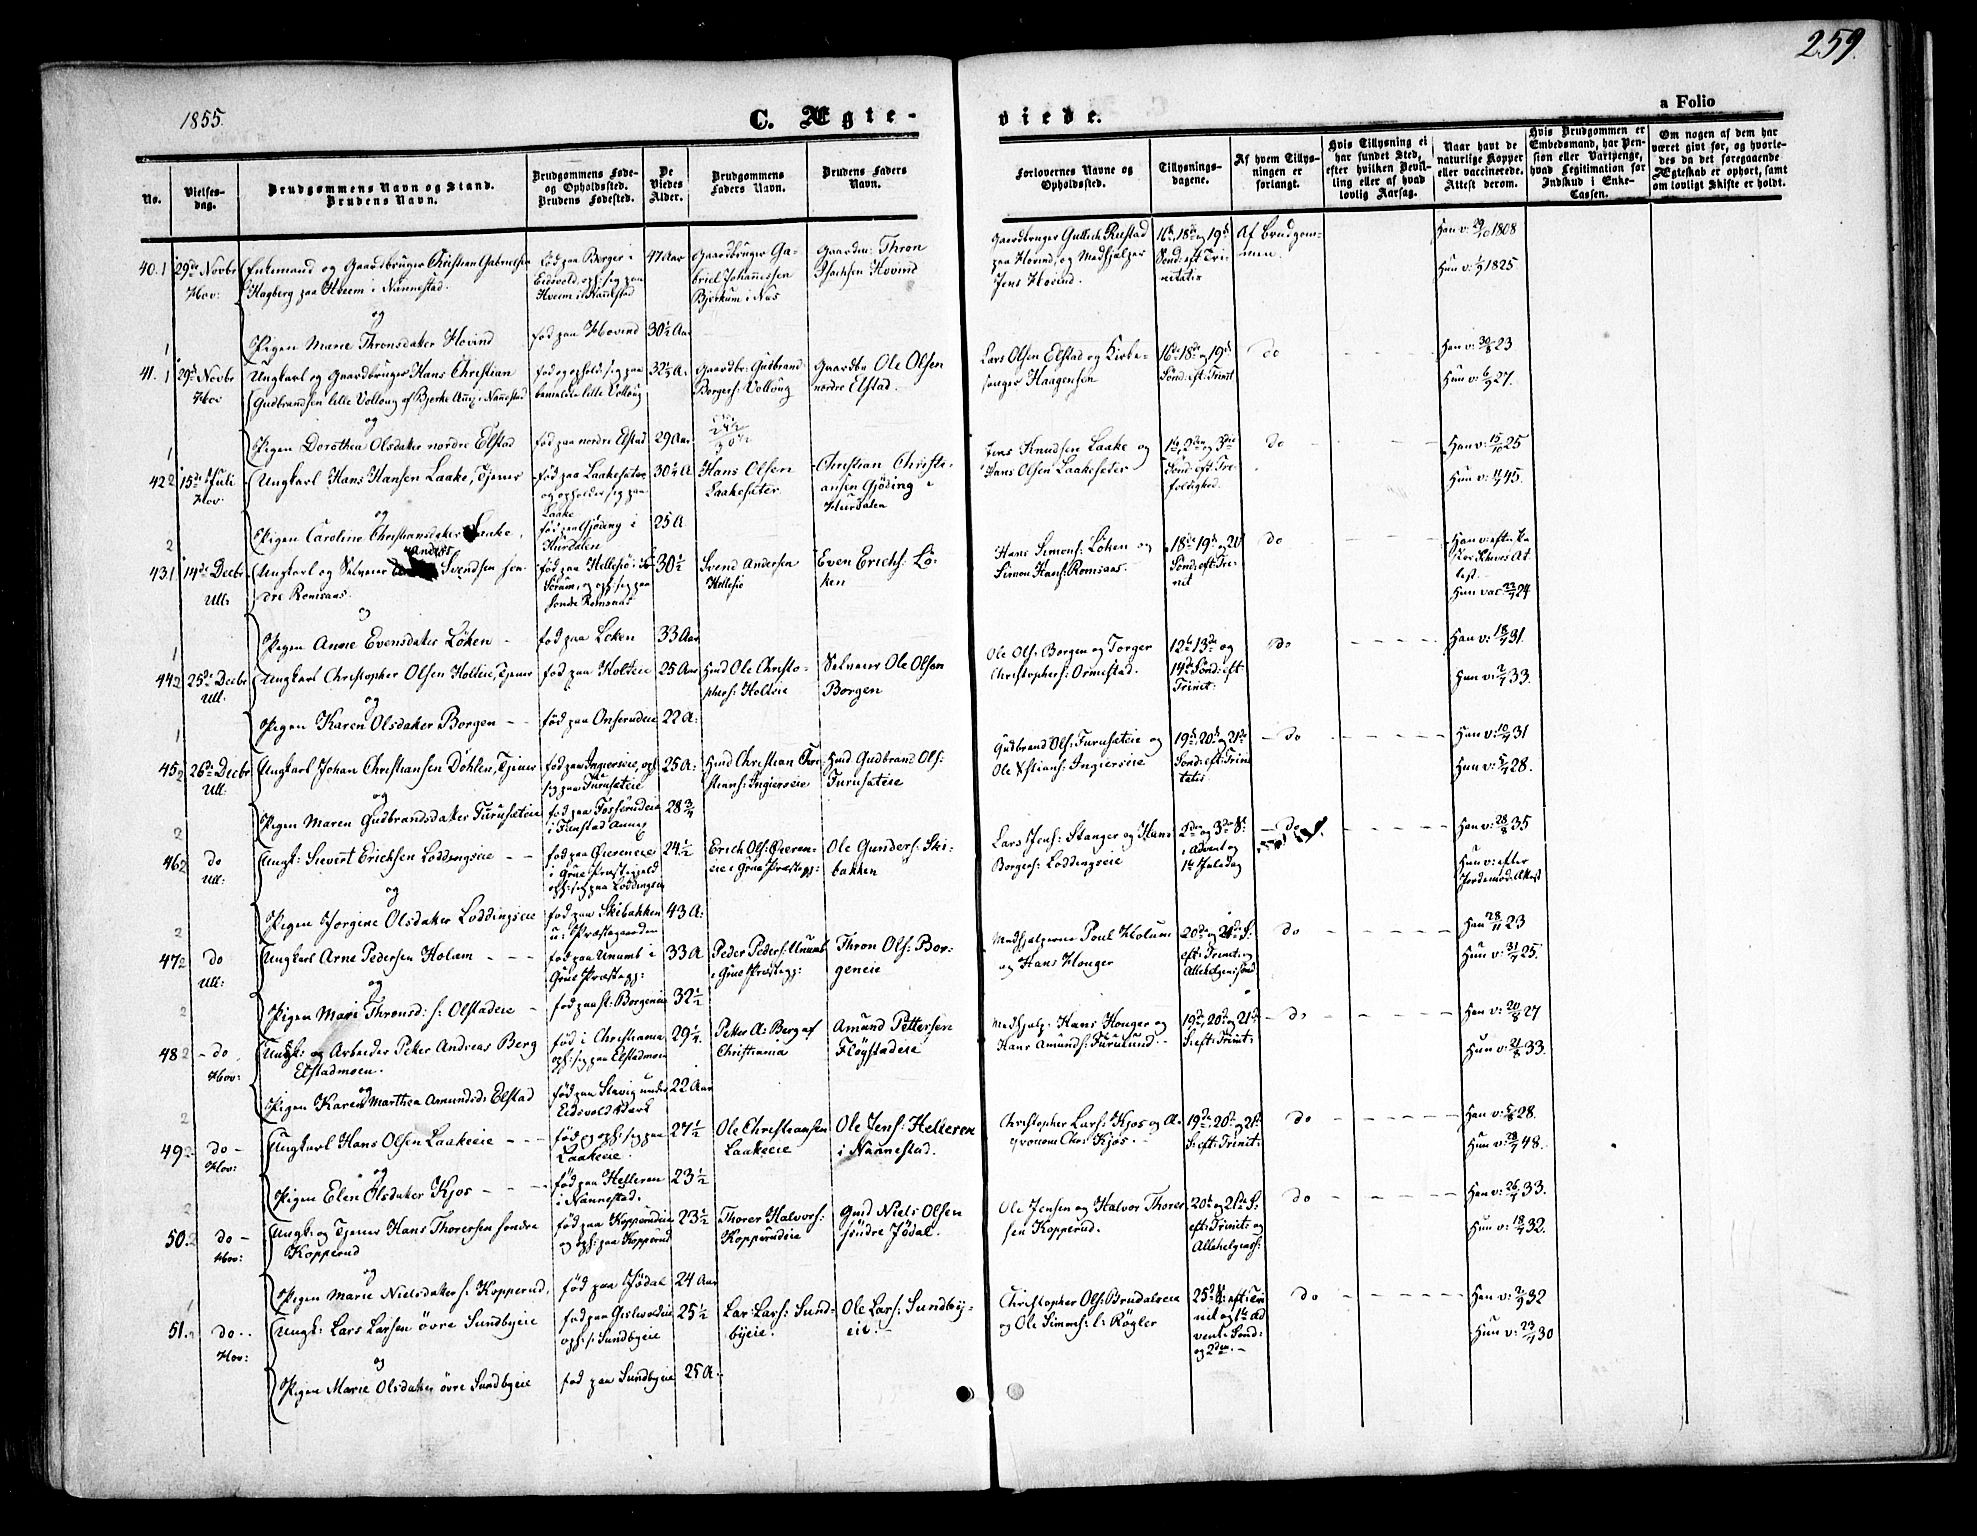 259.
1855.
C. Ægte-
viede.
a Folio
No.
Vielses-
dag.
Brudgommens Navn og Stand.
Brudens Navn.
Brudgommens Føde-
og Opholdssted.
Brudens Fødested.
De
Viedes
Alder.
Brudgommens
Faders Navn.
Brudens Faders
Navn.
Forlovernes Navne og
Opholdssted.
Tillysnings-
dagene.
Af hvem Tillys-
ningen er
forlangt.
Hvis Tillysning ei
har fundet Sted,
efter hvilken Bevil-
ling eller af hvad
lovlig Aarsag.
Naar havt de
naturlige Kopper
eller vaccinerede.
Attest derom.
Hvis Brudgommen er
Embedsmand, har Pen-
sion eller Vartpenge,
hvad Legitimation for
Indskud i Enke-
Cassen.
Om nogen af dem har
været givt før, og hvorle-
des da det foregaaende
Ægteskab er ophørt, samt
om lovligt Skifte er holdt.
40. 1
29de Novbr
Hov:
Enkemand og Gaardbruger Christian Gabrielsen
Hagberg paa Hveem i Nannestad.
og
Pigen Marie Thronsdater Hovind
fød paa Berger i
Eidsvold, oph. sig paa
Hveem i Nannestad
fød paa Hovind
47 Aar
30½ Aar
Gaardbruger Ga-
briel Johannesen
Bjerkum i Næs
Gaardm: Thron
Hovind
Gaardbruger Gullick Rustad
paa Hovind, og Medhjælper
Jens Hovind.
16de 18de og 19de
Sønd: eft: Tri-
nitatis
Af Brudgom-
men.
Han v: 29/10 1808
Hun v: 1/9 1825
41. 1
29de Novbr
Hov
Ungkarl og Gaardbruger Hans Christian
Gudbrandsen lille Vollaug af Bjerke Anx: i Nannestad
og
Pigen Dorothea Olsdater nordre Elstad
fød og ophold. sig paa
bemeldte lille Vollaug
fød paa nordre Elstad
32½ A.
29 Aar
Gaardbr: Gudbrand
Borgers: Vollaug
Gaardbr Ole Olsen
nordre Elstad.
Lars Olsen Elstad og Kirke-
sanger Haagensen
16de 18de og 19de
Sønd: eft: Trinit
do
Han v: 30/8 23
Hun v: 6/9 27.
42 2
15de Juli
Hov
Ungkarl Hans Hansen Laake, Tjener
og
Pigen Caroline Christiansdater Laake,
fød paa Laakesæter
og opholder sig paa
Laake
fød paa Gjøding i
Hurdalen
30¼ A
25 A
Hans Olsen
Laakesæter
Christian Christi-
ansen Gjøding i
Hurdalen
Jens Knudsen Laake og
Hans Olsen Laakesæter
1ste, 2den og 3die
Sønd: eft: Tre-
foldighed.
do
Han v: 15/10 25
Hun v: 45.
43 1
14de Decbr
Ull:
Ungkarl og Selveier Anders Svendsen søn-
dre Romsaas.
og
Pigen Anne Evensdater Løken
fød paa Hellesø i
Sørum, og oph: sig paa
søndre Romsaas
fød paa Løken
30½
33 Aar
Svend Andersen
Hellesø
Even Erichs: Lø-
ken
Hans Simons: Løken og
Simon Hans: Romsaas.
18de 19de og 20
Sønd: eft: Tri-
nit
do
Hun vac 23/9 24
44 2
25de Decbr
Ull:
Ungkarl Christopher Olsen Holteie, Tjener
og
Pigen Karen Olsdater Borgen
fød paa Holteie
fød paa Onserudeie
25 Aar
22 A:
Hmd Ole Christo-
phers: Holteie
Selveier Ole Olsen
Borgen
Ole Ols: Borgen og Torger
Christophers: Ormestad.
12te 13de og
14de Sønd: eft
Trinit:
do
Han v: 18/9 31.
Hun v: 2/7 33.
45 2
26de Decbr
Ull:
Ungkarl Johan Christiansen Døhlen, Tjener
og
Pigen Maren Gudbrandsdater Furusæteie
fød paa Ingierseie, oph
sig paa Furusæteie
fød paa Fosserudeie
i Funstad Annex
25 A:
28¾
Hmd Christian Chri-
stians: Ingierseie
Hmd Gudbrand Ols:
Furusæteie
Gudbrand Ols: Furusæteie og
Ole Xstians: Ingierseie
19de, 20de og 21de
Sønd: eft: Trini
tatis
do
Han v: 10/9 31
Hun v: 28.
46 2
do
Ull:
Ungk: Sievert Ericksen Loddingseie
og
Pigen Jørgine Olsdater Loddingseie
fød paa Øiereneie
i Grue Præstegjeld
oph: sig paa Loddingseie
fød paa Skibakken
u: Præstegaarden
24½
43 A:
Erich Ols: Øieren-
eie i Grue Præstegj:
Ole Gunders: Ski-
bakken
Lars Jens: Stanger og Hans
Borgers: Loddingseie
2den og 3die S:
i Advent og
1ste Juledag
do
Han v: 28/8 35
Hun v: efter
Jordemod: Attest
47 2
do
Ull:
Ungkarl Arne Pedersen Holum
og
Pigen Mari Thronsd: s: Olstadeie
fød paa Unumb i
Grue Præstegj:
fød paa st: Borgeneie
33 A
32½
Peder Peders: Unumb
i Grue Præstegj:
Thron Ols: Bor-
geneie
Medhjælperne Poul Holum
og Hans Houger
20de og 21de S:
eft: Trinit: og
Allehelgensønd
do
Han 28/11 23
Hun v: 31/7 25.
48 2
do
Hov:
Ungk: og Arbeider Peter Andreas Berg
Elstadmoen.
og
Pigen Karen Marthea Amundsd: Elstad
fød i Christiania
oph: sig paa Elstadmoen
fød paa Stavig under
Eidsvold Værk
29¼.
22 Aar
Petter A: Berg af
Christiania
Amund Pettersen
Fløystadeie
Medhjælp. Hans Houger og
Hans Amunds: Furulund.
19de, 20de og 21de
S: eft: Trinit:
do
Han v: 20/8 27
Hun v: 21/8 33.
49 2
do
Hov:
Ungkarl Hans Olsen Laakeeie
og
Pigen Elen Olsdater Kjos
fød og oph: sig paa
Laakeeie
fød paa Helleren
i Nannestad.
27½
23½
Ole Christiansen
Laakeeie
Ole Jens: Helleren
i Nannestad.
Christopher Lars: Kjos og A-
gronom Chr: Kjos.
19de 20de og 21de
S: eft: Trinit:
do
Han v: 28.
Hun v: 48.
50. 2
do
Hov:
Ungk: og Tjener Hans Thorersen søndre
Kopperud
og
Pigen Marie Nielsdater s: Kopperud,
fød paa Kopperudeie
og oph: paa Kopperud
fød paa Jødal
23½
24 Aar
Thorer Halvors:
Kopperudeie
Gmd Niels Olsen
søndre Jødal.
Ole Jensen og Halvor Thorer
sen Kopperud.
20de og 21de S:
eft: Trinit: og
Allehelgenss:
do
Han v: 26/9 33.
Hun v: 18/9 32.
51. 2
do
Hov:
Ungk: Lars Larsen øvre Sundbyeie
og
Pigen Marie Olsdater øvre Sundbyeie
fød paa Gislevoldeie
oph: s: Sundbyeie
fød paa Sundbyeie
25½
25 A.
Lars Lars: Sund-
byeie.
Ole Lars: Sundby-
eie.
Christopher Ols: Brudalseie
og Ole Simens: l: Røgler
25de S: eft: Tri
nit og 1ste Ad
vents Sønd:
og 2den.
do
Han v: 2/9 32
Hun v: 23/9 30